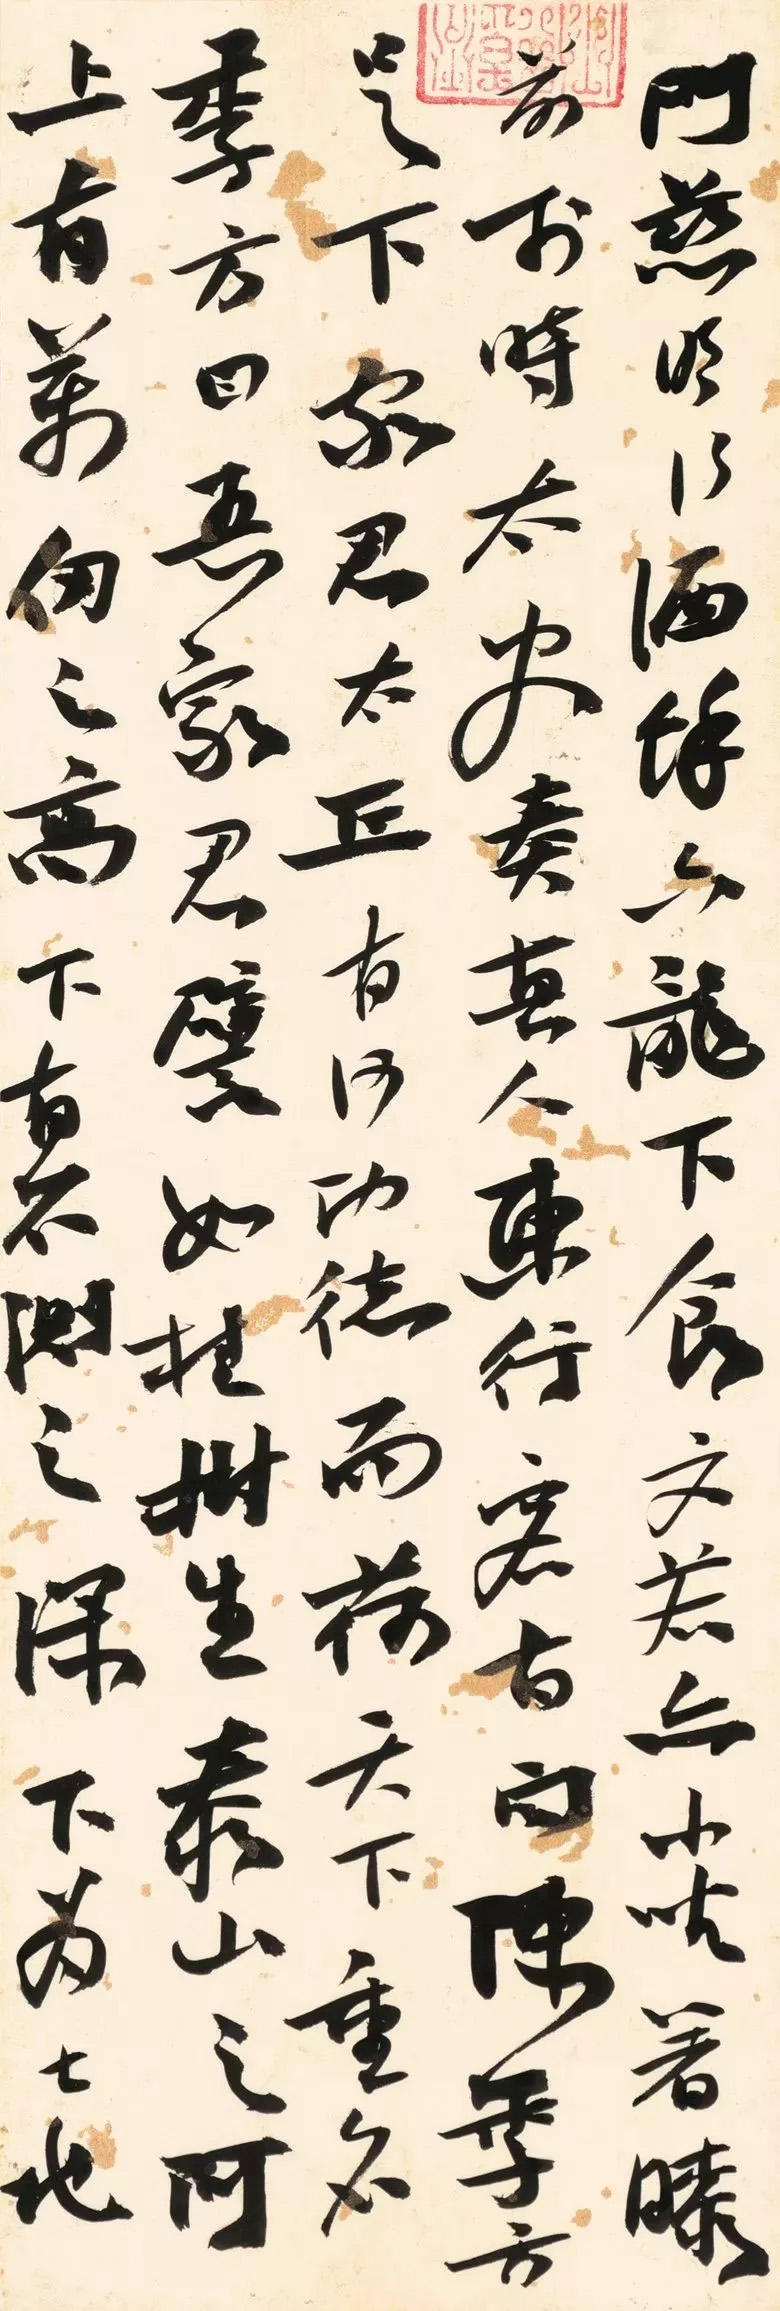 門慈明行酒餘六龍下食文若亦小坐著膝
前于時太史奏真人東行客有問陳季方
足下家君太丘有何功德而荷天下重名
季方曰吾家君譬如桂樹生泰山之阿
上有萬仞之高下有不測之深下為